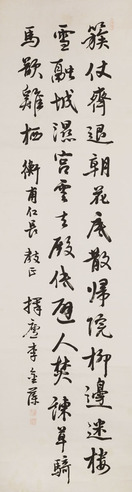 簇仗齊退朝花底散歸院柳邊迷樓
雪融城濕宮雲去殿低避人焚諫草騎
馬欲雞栖 衡甫仁長 教正 擇廬李金藻